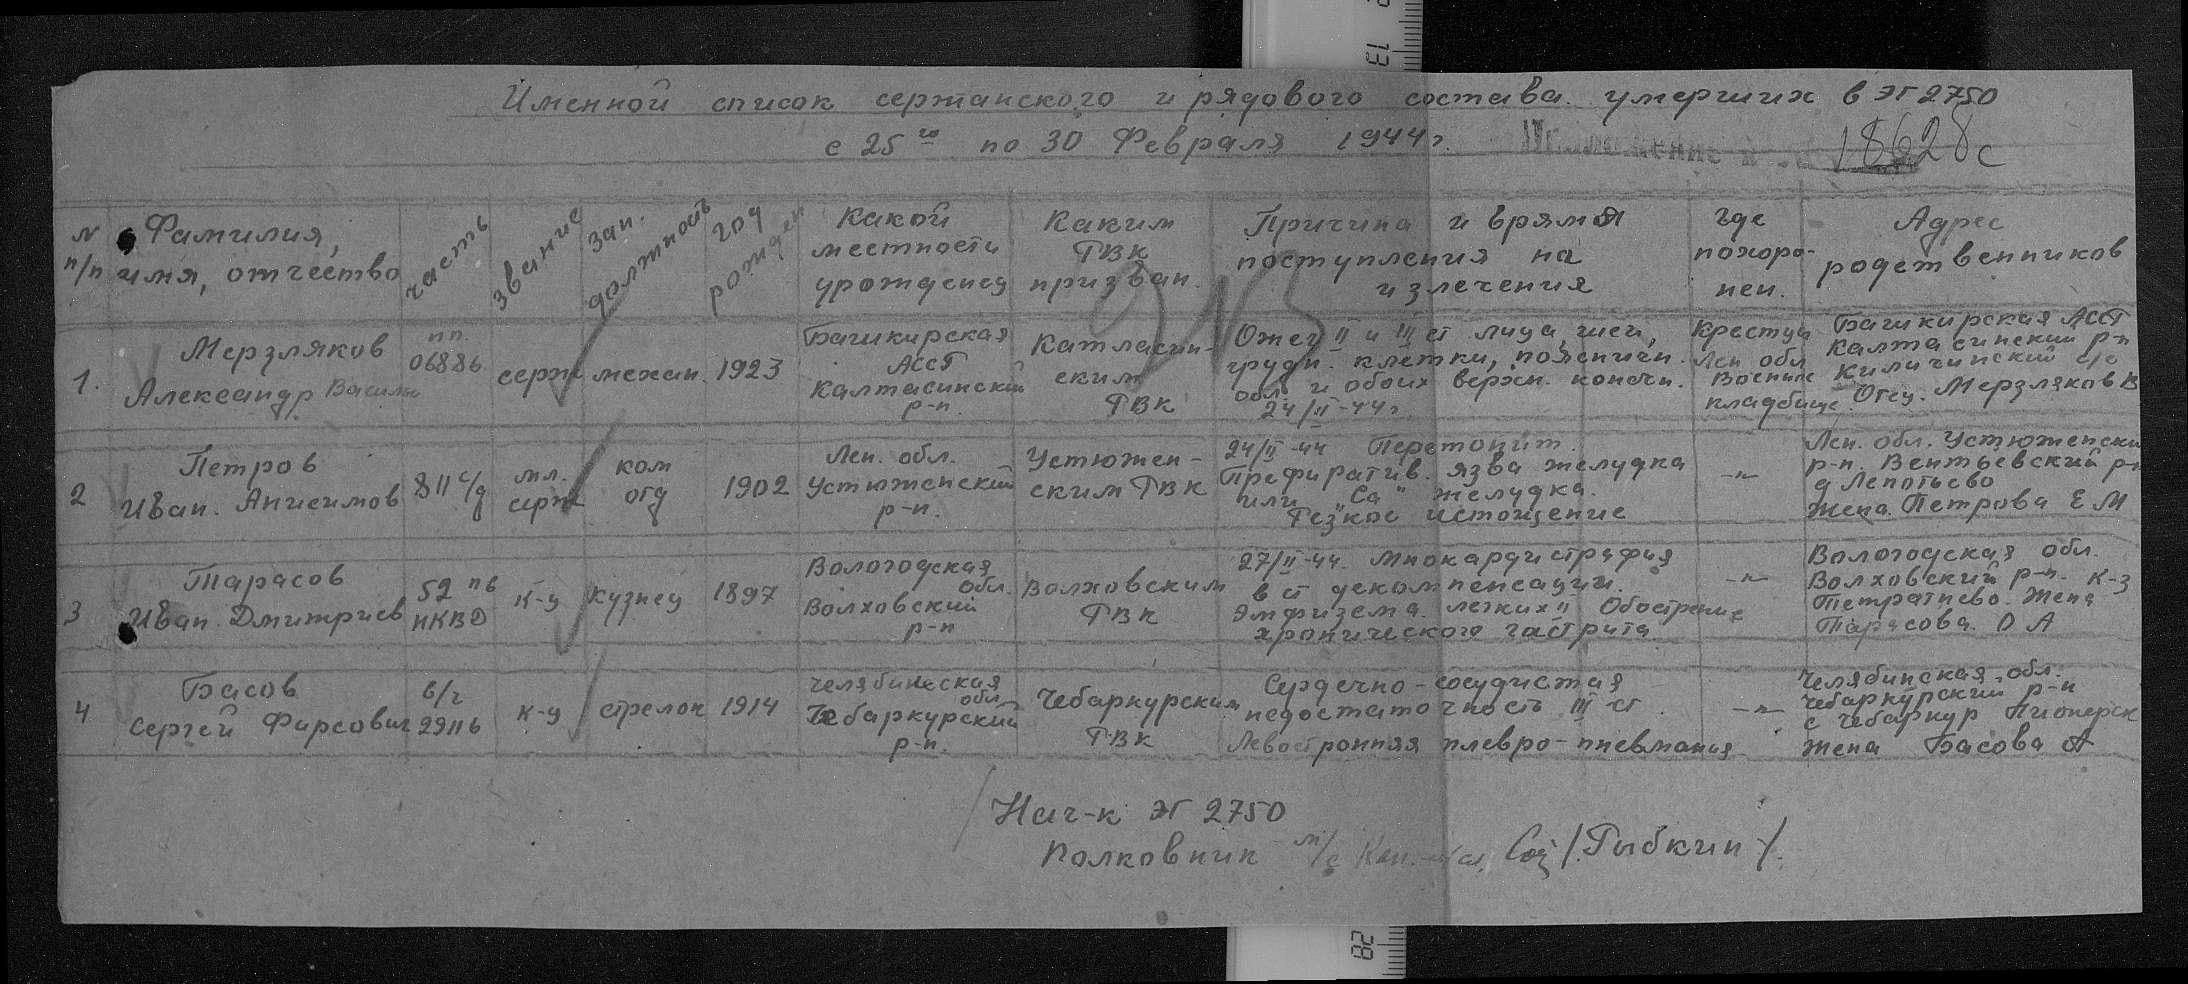 Именной список сержанского и рядового состава умерших в ЭГ 2750
с 25го по 30 Февраля 1944 г.
18628с
N п/п
Фамилия, имя, отчество
часть
звание
зан. должность
год рожден
Какой местности урожденец
Каким РВК призван.
Причина и врямя поступления на излечения
Где похоро-нен.
Адрес родственников
1.
Мерзляков
Александр Василь
пп. 06886
серж
механ.
1923
Башкирская
АССР
Калтасинский
р-н.
Катласин-
ским
РВК
Ожег II и III ст лица, шеи,
грудн. клетки, поясничн.
обл. и обоих верхн. конечн.
24/II-44г.
Крестцы
Лен обл
Военное
кладбище
Башкирская АССР
Калтасинский р-н
Киличинский с/с
Отец. Мерзляков В
2
Петров
Иван. Анисимов
811 с/д
мл.
серж
ком
отд
1902
Лен. обл.
Устюженский
р-н.
Устюжен-
ским РВК
24/II-44 Перетонит.
Префиратив. язва желудка
или "Са" желудка.
Резкое истощение
-"-
Лен. обл. Устюженски
р-н. Вентьевский р-н
д Лепотьево
Жена. Петрова Е М
3
Тарасов
Иван. Дмитриев
52 пв
НКВД
к-ц
кузнец
1897
Вологодская
обл.
Волховский
р-н
Волховским
РВК
27/II-44. Миокардистрафия
в ст декомпенсации.
Эмфизема легких Обострение
хронического гастрита.
-"-
Вологодская обл.
Волховский р-н. к-з
Петратнево. Жена
Тарасова. О А
4
Басов
Сергей Фирсович
в/ч
29116
к-ц
стрелок
1914
Челябинская
обл.
Чебаркурский
р-н.
Чебаркурским
РВК
Сердечно-сосудистая
недостаточность III ст.
Левостронняя плевро-пневмания
-"-
Челябинская обл.
Чебаркурский р-н
с Чебаркур Пионерск
Жена Басова А
Нач-к ЭГ 2750
Полковник м/с /Рыбкин/.
13
28